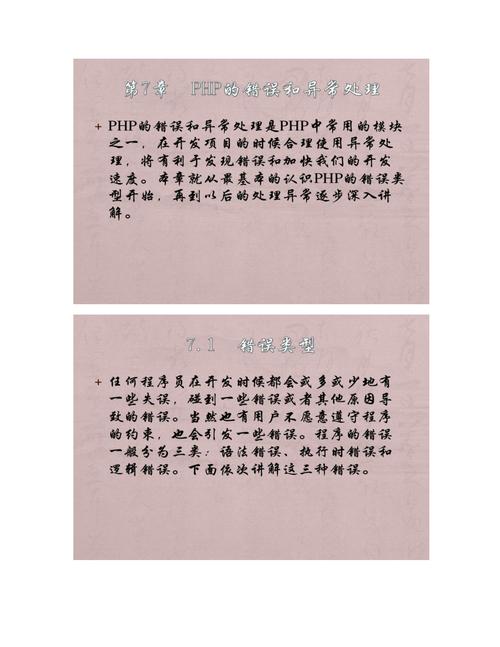 第7章 PHP的错误和异常处理
+ PHP的错误和异常处理是PHP中常用的模块
之一，在开发项目的时候合理使用异常处
理，将有利于发现错误和加快我们的开发
速度。本章就从最基本的认识PHP的错误类
型开始，再到以后的处理异常逐步深入讲
解。
7.1 错误类型
+ 任何程序员在开发时候都会或多或少地有
一些失误，碰到一些错误或者其他原因导
致的错误。当然也有用户不愿意遵守程序
的约束，也会引发一些错误。程序的错误
一般分为三类：语法错误、执行时错误和
逻辑错误。下面依次讲解这三种错误。